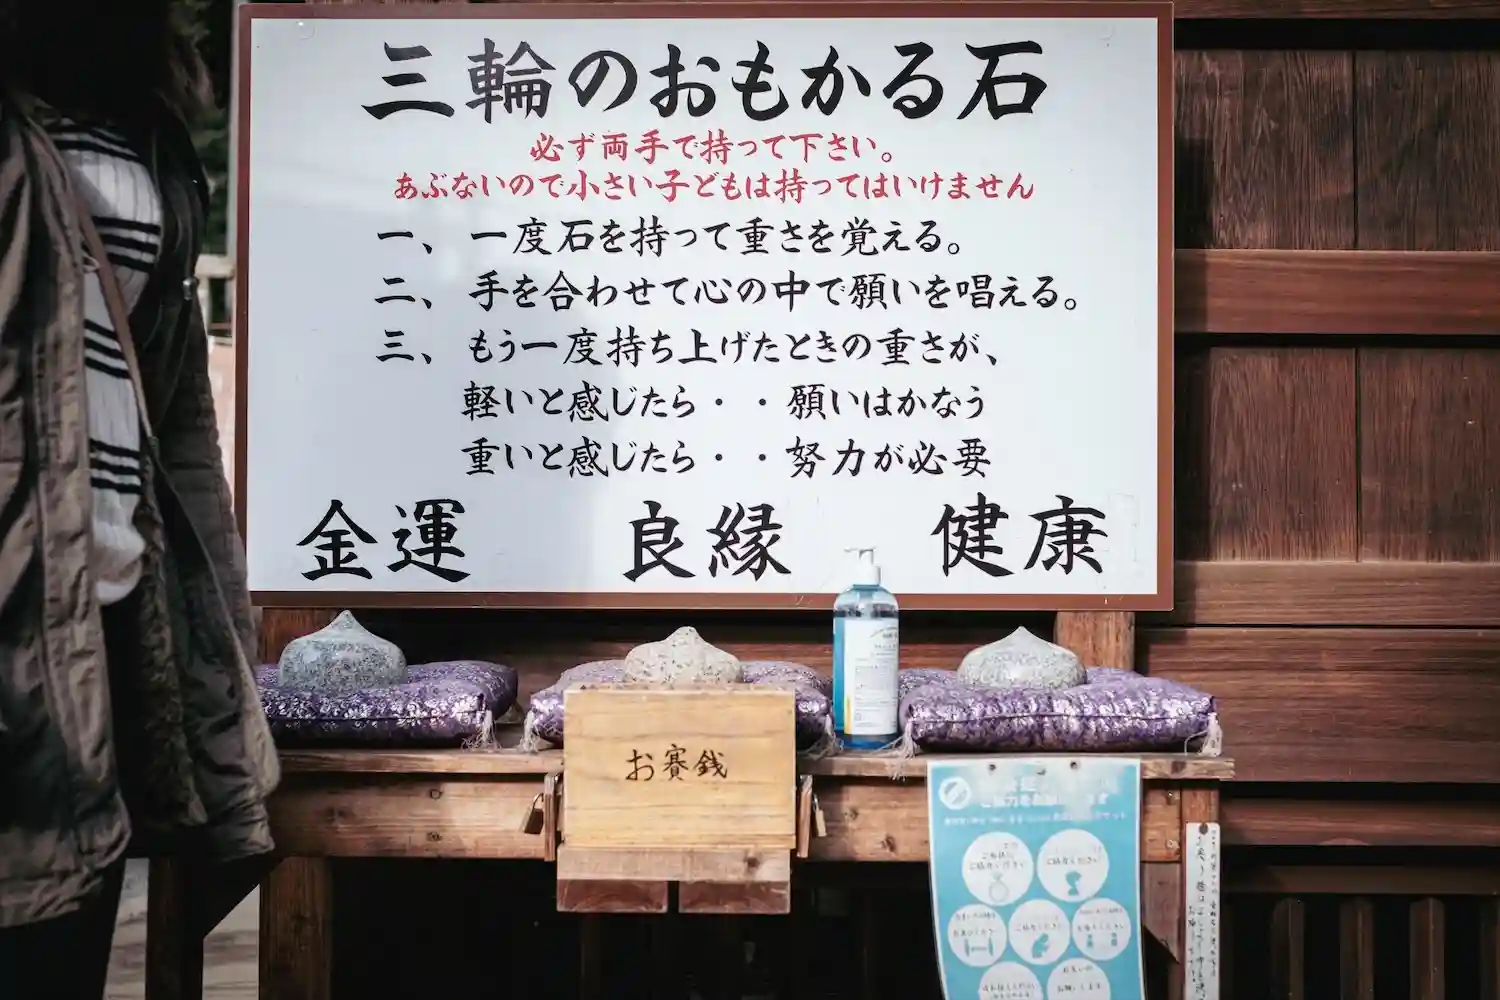 三輪のおもかる石
必ず両手で持って下さい。
あぶないので小さい子どもは持ってはいけません
一、一度石を持って重さを覚える。
二、手を合わせて心の中で願いを唱える。
三、もう一度持ち上げたときの重さが、
軽いと感じたら・・願いはかなう
重いと感じたら・・努力が必要
金運 良縁 健康
お賽銭